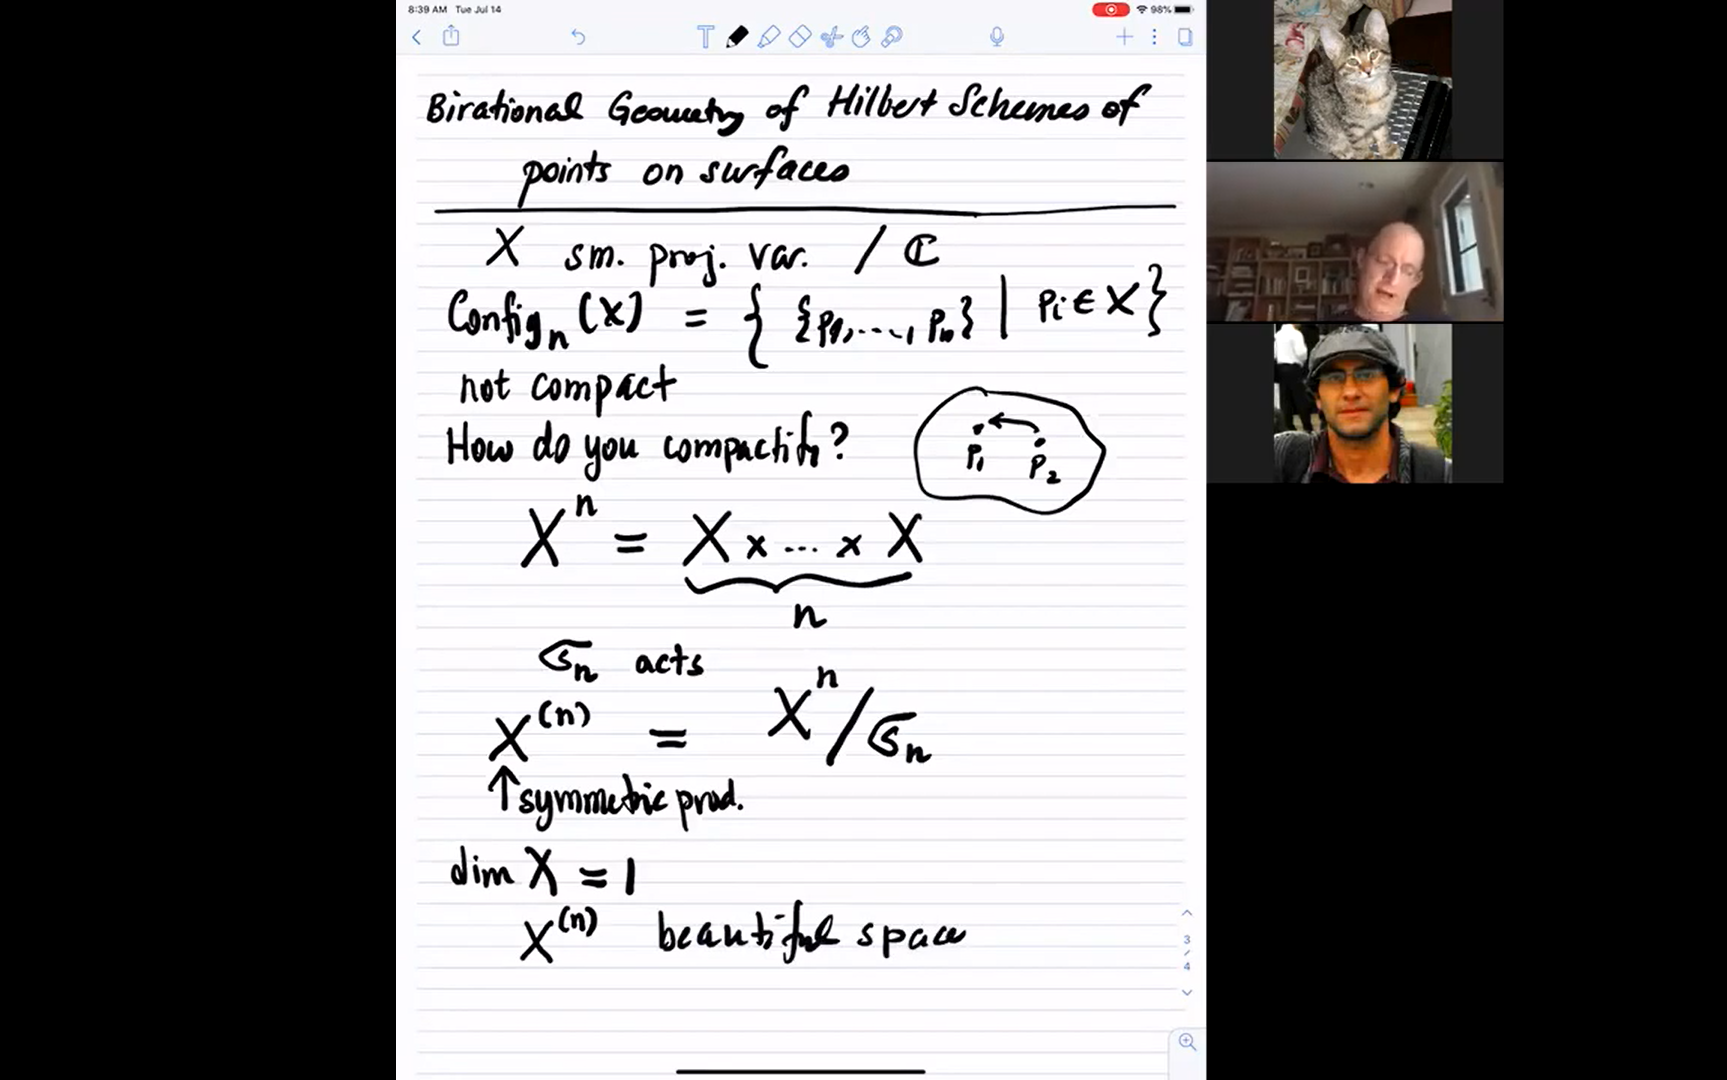 8:39 AM Tue Jul 14
98%
Birational Geometry of Hilbert Schemes of
points on surfaces
X sm. proj. var. / ℂ
Config_n (X) = { {p_1, ..., p_n} | p_i ∈ X }
not compact
How do you compactify?
p_1 p_2
X^n = X × ... × X
n
𝔖_n acts
X^(n) = X^n / 𝔖_n
↑ symmetric prod.
dim X = 1
X^(n) beautiful space
3
/
4